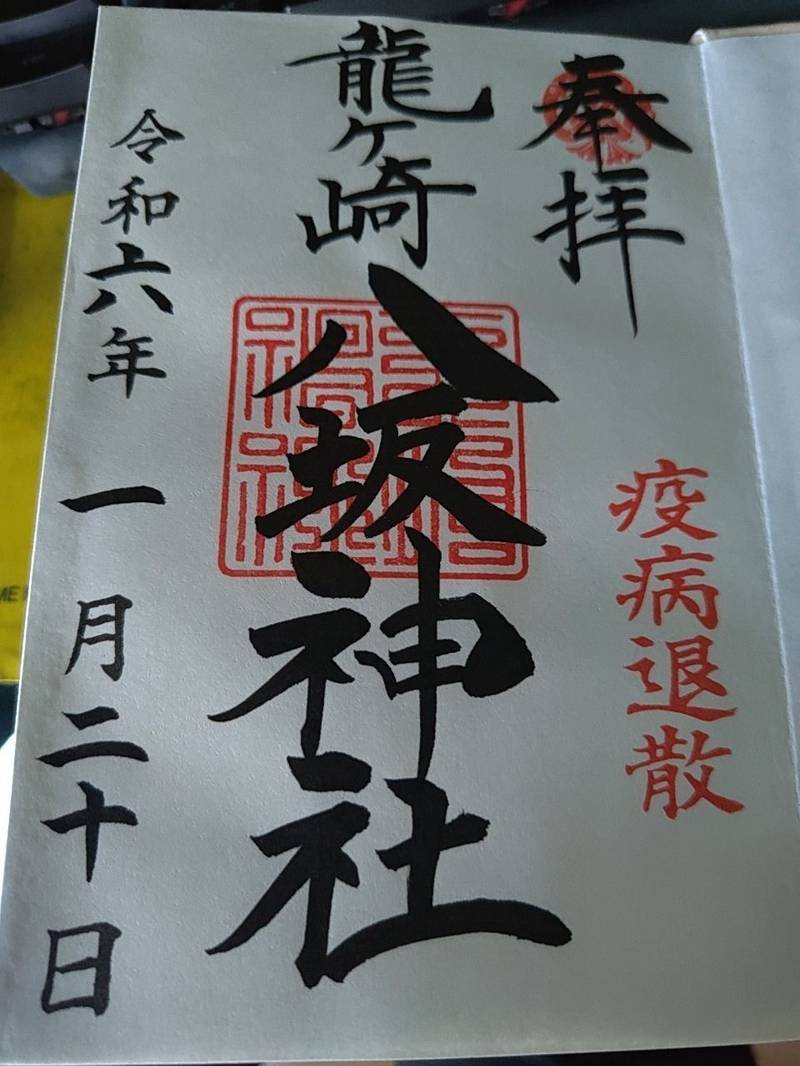 奉拝
疫病退散
龍ヶ崎
八坂神社
令和六年 一月二十日